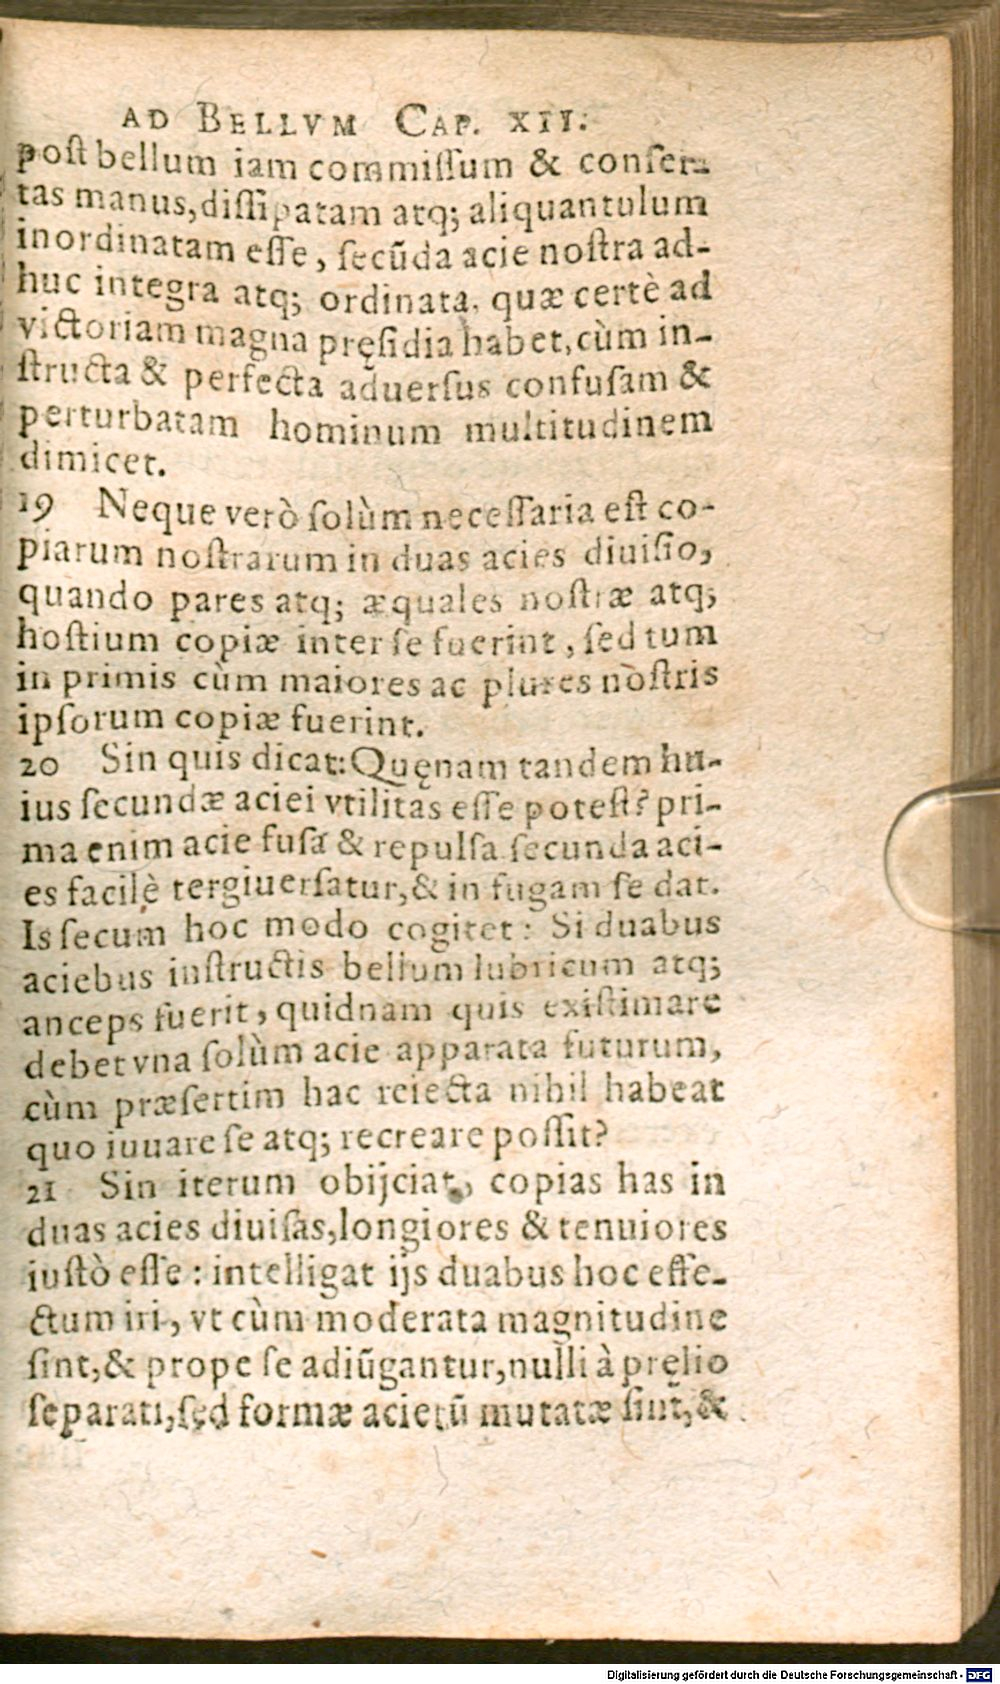 AD BELLVM CAP. XII.
post bellum iam commissum & conser-
tas manus, dissipatam atq; aliquantulum
inordinatam esse, secũda acie nostra ad-
huc integra atq; ordinata, quæ certè ad
victoriam magna pręsidia habet, cùm in-
structa & perfecta aduersus confusam &
perturbatam hominum multitudinem
dimicet.
19 Neque verò solùm necessaria est co-
piarum nostrarum in duas acies diuisio,
quando pares atq; æquales nostræ atq;
hostium copiæ inter se fuerint, sed tum
in primis cùm maiores ac plures nostris
ipsorum copiæ fuerint.
20 Sin quis dicat: Quęnam tandem hu-
ius secundæ aciei vtilitas esse potest? pri-
ma enim acie fusa & repulsa secunda aci-
es facilè tergiuersatur, & in fugam se dat.
Is secum hoc modo cogitet: Si duabus
aciebus instructis bellum lubricum atq;
anceps fuerit, quidnam quis existimare
debet vna solùm acie apparata futurum,
cùm præsertim hac reiecta nihil habeat
quo iuuare se atq; recreare possit?
21 Sin iterum obijciat, copias has in
duas acies diuisas, longiores & tenuiores
iustò esse: intelligat ijs duabus hoc effe-
ctum iri, vt cùm moderata magnitudine
sint, & prope se adiũgantur, nulli à pręlio
separati, sed formæ acierũ mutatæ sint, &
Digitalisierung gefördert durch die Deutsche Forschungsgemeinschaft - DFG